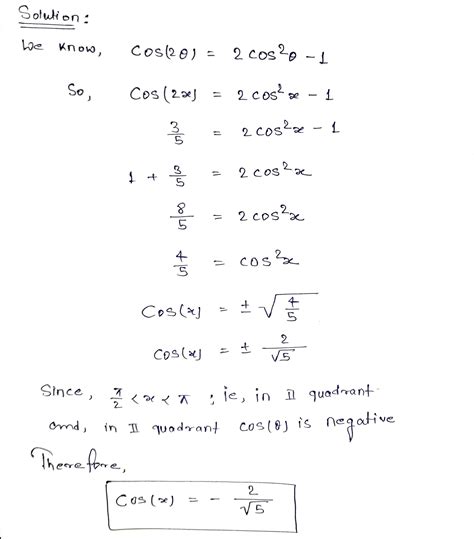 Solution:
We know, cos(2θ) = 2cos²θ - 1
So, cos(2x) = 2cos²x - 1
3/5 = 2cos²x - 1
1 + 3/5 = 2cos²x
8/5 = 2cos²x
4/5 = cos²x
Cos(x) = ± √(4/5)
cos(x) = ± 2/√5
Since, π/2 < x < π ; ie, in II quadrant.
and, in II quadrant cos(θ) is negative
Therefore,
Cos(x) = - 2/√5